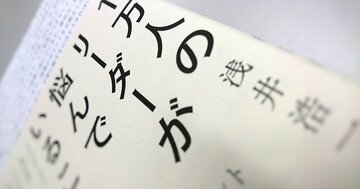 万人の
リーダーが
悩んで
いるこ
浅井浩
ント